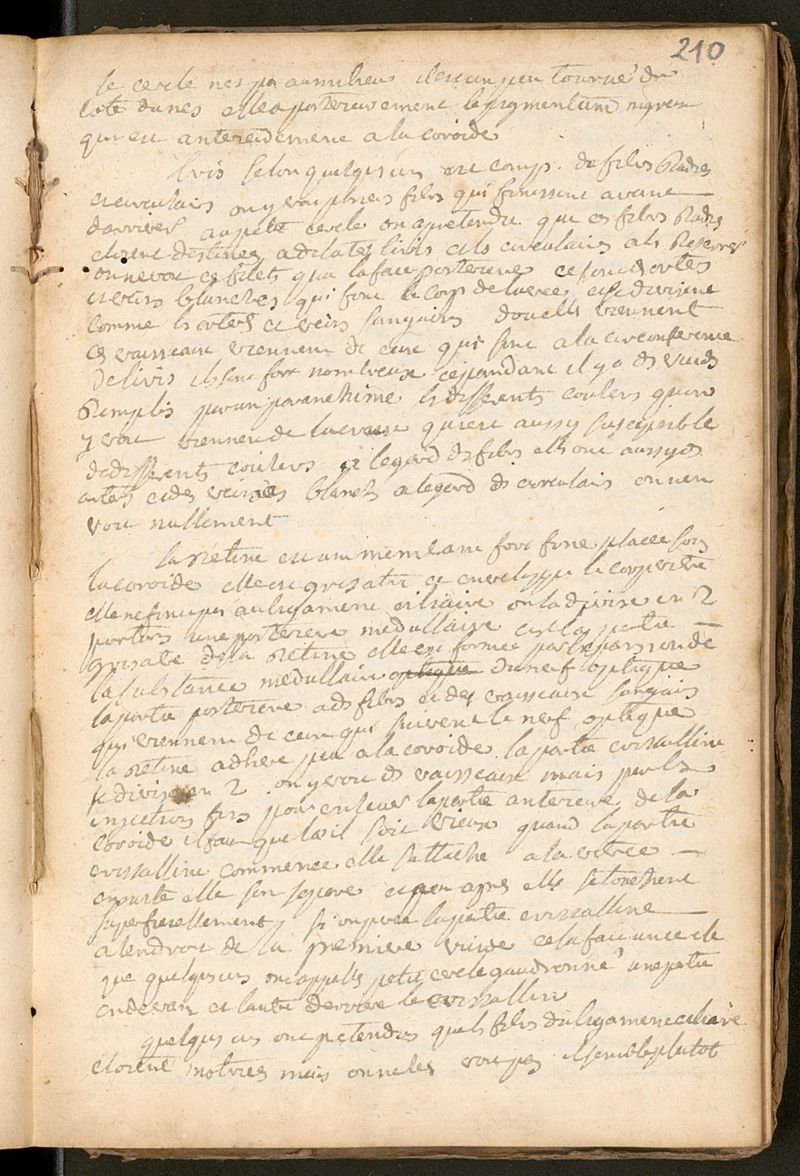 210
le cercle nest pas au milieu il est un peu tourné du
coté du nes elle a posterieurement le pigmentum nigrum
qui est anterieurement a la coroide
liris selon quelques uns est comp. de fibres Radiés
et circulaires on y voit plusieurs fibres qui finissent avant
darriver au petit cercle on a pretendu que ces fibres Radiés
etoient destinées a dilater liris et ls circulaires a ls Reserrer
on ne voit ces filets qua la face posterieure ce sont ds arteres
et veins blanches qui font le corps de luvée elle se divisent
comme ls arteres et veins sanguins douells viennent
ces vaisseaux viennent de ceux qui sont a la circonference
de liris ils sont fort nombreux cependant il y a ds vuids
Remplis par un paranchime ls differents coulers quon
y voit viennent de luvée qui est aussy susceptible
de differents coulers a legard ds fibres ells ont aussy ds
arteres et des veines blanches a legard ds circulaires on nen
voit nullement
la retine est un membane fort fine placée sous
la coroide elle est grisatre et enveloppe le corp vitré
elle ne finit pas au ligament ciliaire on la divise en 2
portions une posterieure medullaire cest la partie
grisatre de la retine elle est formée par lexpansion de
la substance medullaire du nerf optique
la partie posterieure a ds fibres et des vaisseaux sanguins
qui viennent de ceux qui suivent le nerf optique
la retine adhere peu a la coroide la partie cristalline
se divise en 2 on y voit ds vaisseaux mais par ls
injections fins pour enlever la partie anterieure de la
coroide il faut que loeil soit vieux quand la partie
cristalline commence elle sattache a la vitrée
ensuite elle sen separe et peu apres ells se touchent
superficiellement si on la partie cristalline
a lendroit de la premiere vuide cela fait un cercle
que quelques uns ont appellé petit cercle gaudronné une partie
en devant et lautre derriere le cristallin
quelques uns ont pretendus que ls fibres du ligament ciliaire
etoient motrices mais on ne les voit pas il semble plutot